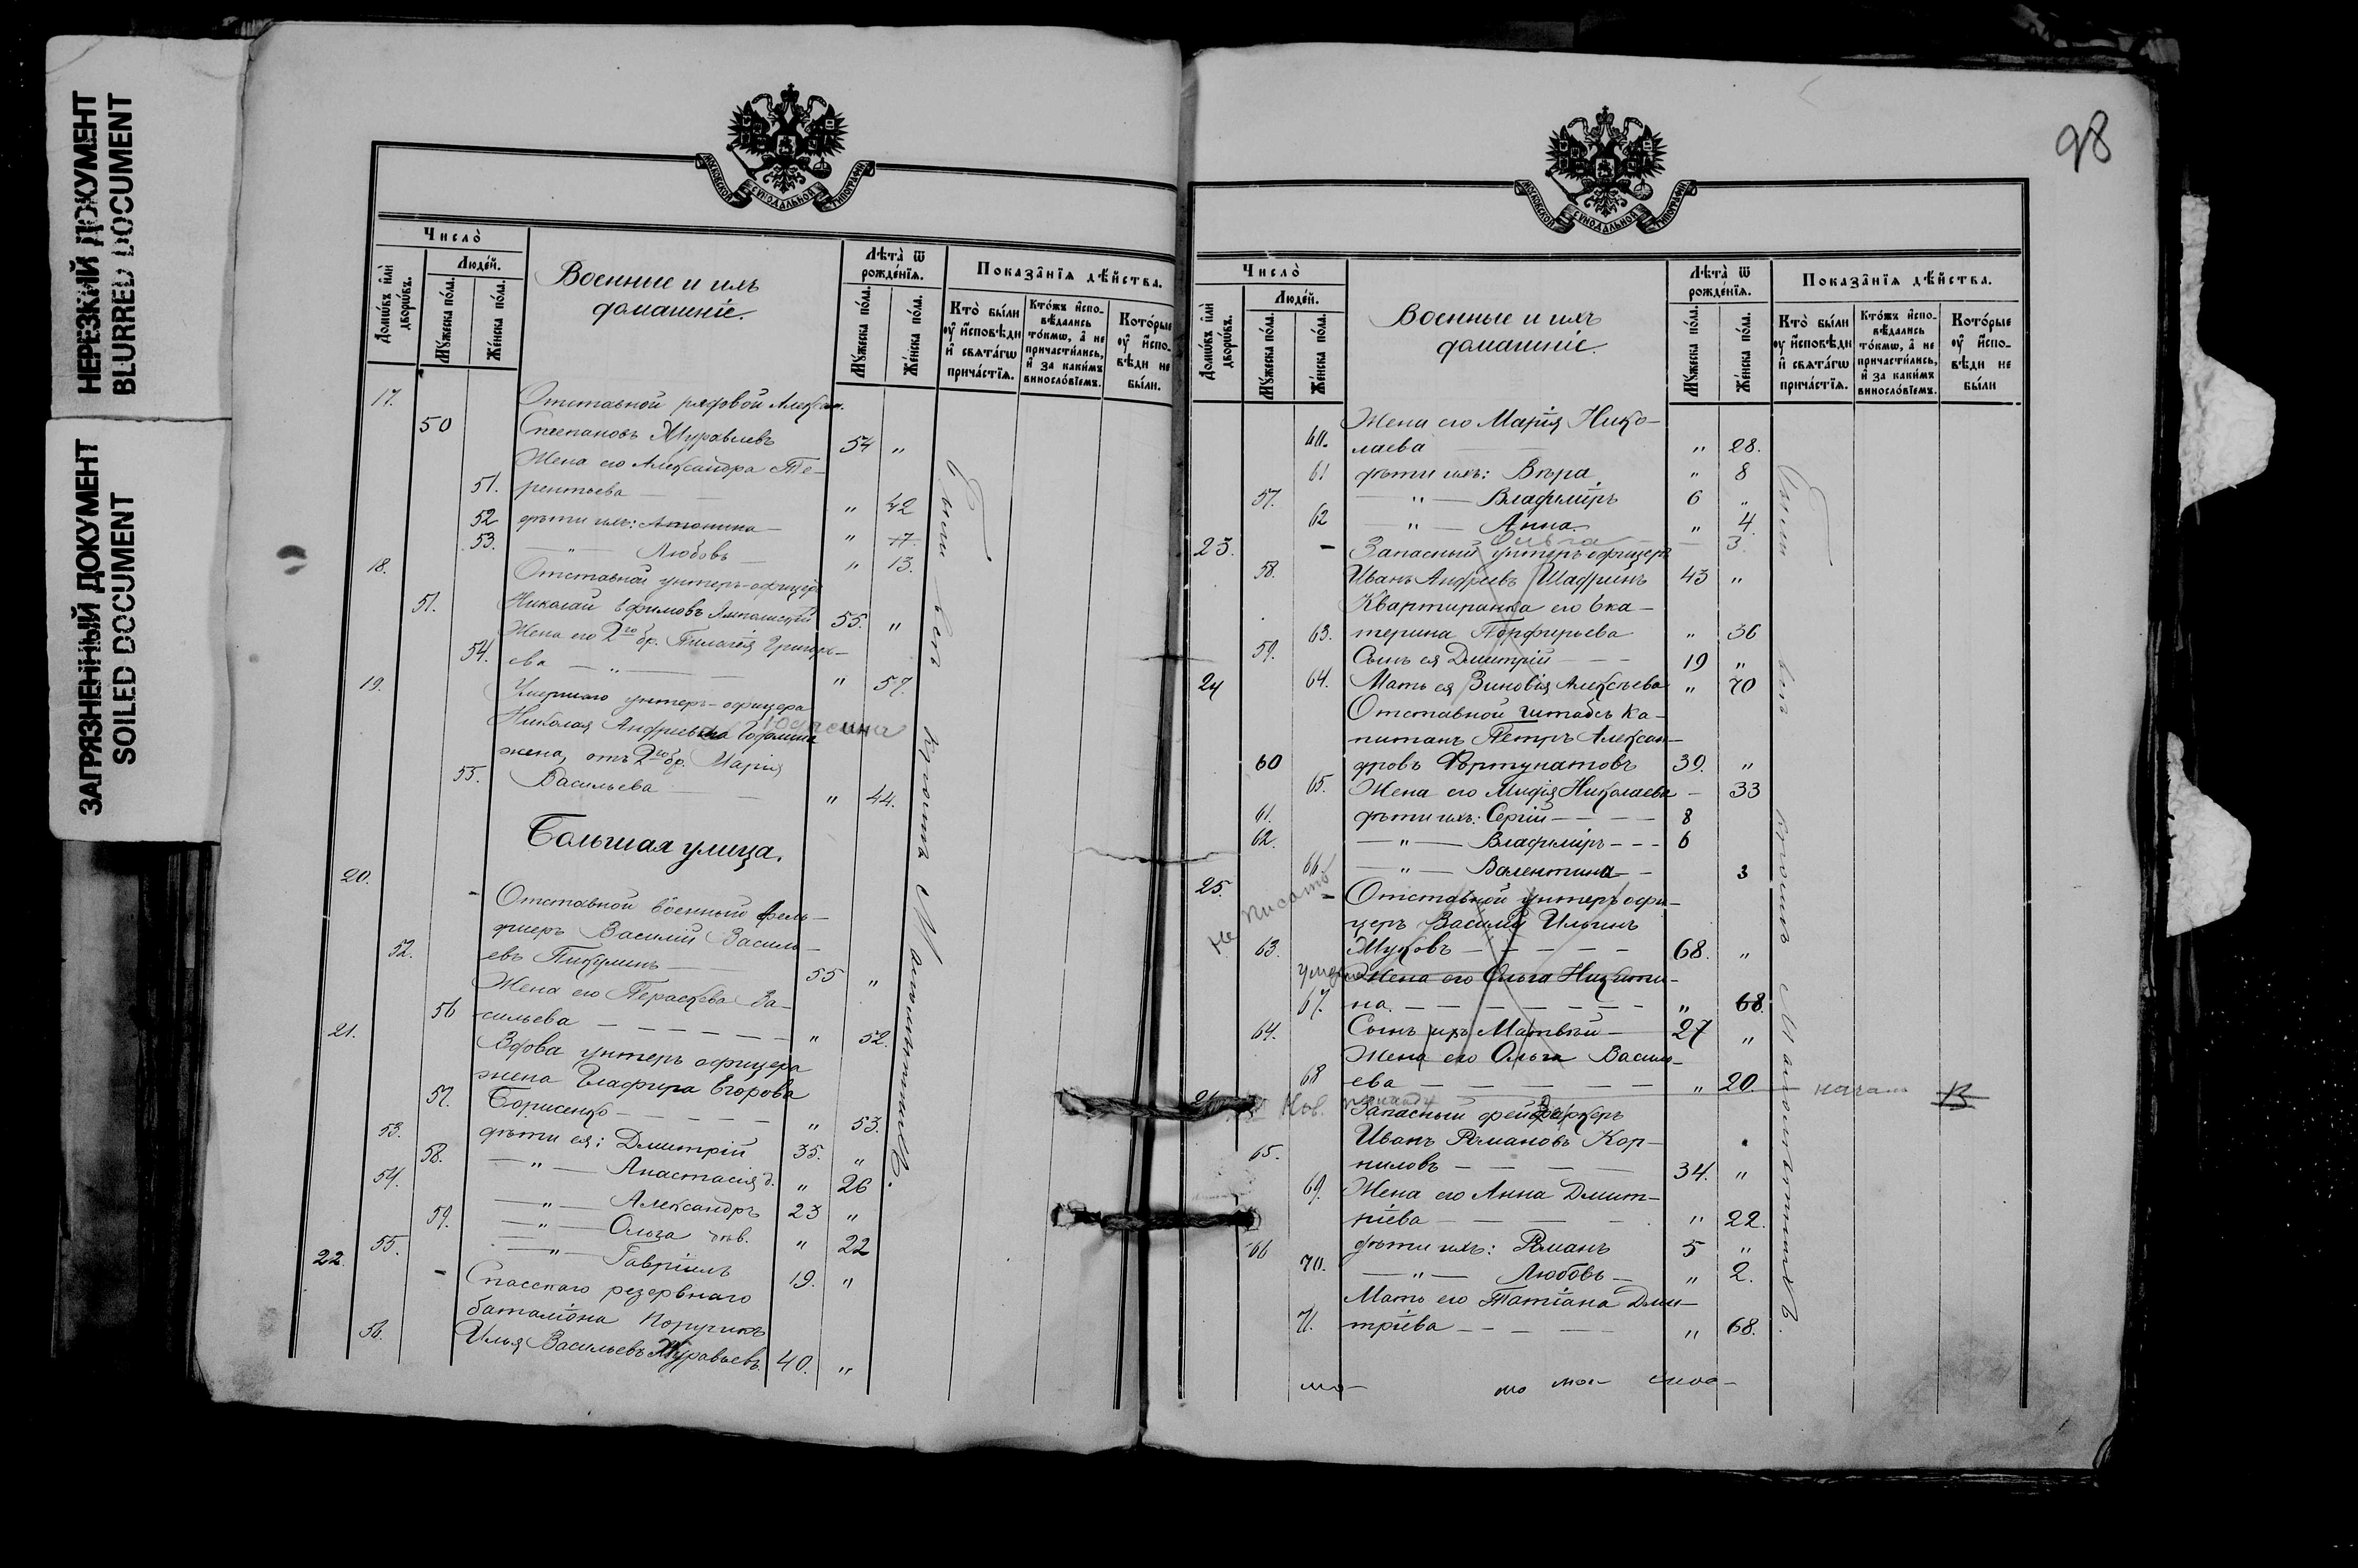 НЕРЕЗКИЙ ДОКУМЕНТ
BLURRED DOCUMENT
ЗАГРЯЗНЕННЫЙ ДОКУМЕНТ
SOILED DOCUMENT
МОСКОВСКОЙ СУНОДАЛЬНОЙ ТИПОГРАФІИ
Число̀
Домѡ́въ и҆лѝ дворѡ́въ.
Люде́й.
Мꙋ́жеска по́ла.
Же́нска по́ла.
Военные и ихъ
домашніе.
Лѣта̀ ѿ рожде́нїѧ.
Мꙋ́жеска по́ла.
Же́нска по́ла.
Показа̂нїѧ дѣ́йства.
Кто̀ бы́ли ᲂу҆ и҆́сповѣди и҆ свѧта́гѡ прича́стїѧ.
Кто́жъ и҆спо-вѣ́дались то́кмѡ, а҆ не причасти́лись, и҆ за каки́мъ винносло́вїемъ.
Кото́рые ᲂу҆ и҆́спо-вѣди не бы́ли.
17. Отставной рядовой Алексан.
50 Степановъ Муравлевъ 54 "
Жена его Александра Те-
51. рентьева — " 42
52 дѣти ихъ: Антонина — " 17.
53. — " — Любовь — " 13.
18. Отставной унтеръ-офицеръ
51. Николай Ефимовъ 55. "
Жена его 2го бр. Пелагея Григорь-
54. ева — " — " 57.
19. Умершаго унтеръ-офицера
Николая Андреева
жена, отъ 2го бр. Марія
55. Васильева — " 44.
Были всѣ кромѣ малолѣтнихъ.
Большая улица.
20. - Отставной военный фель-
дшеръ Василій Василь-
52. евъ Пикулинъ — 55 "
Жена его Параскева Ва-
56 сильева — — — — " 52.
21. Вдова унтеръ офицера
жена Глафира Егорова
57. Борисенко — — — " 53.
53. дѣти ея: Дмитрій 35. "
58. — " — Анастасія д. " 26
54. — " — Александръ 23 "
59. — " — Ольга дѣв. " 22
55. — " — Гавріилъ 19. "
22. - Спасскаго резервнаго
баталіона Поручикъ
56. Илья Васильевъ Муравьевъ 40. "
98
МОСКОВСКОЙ СУНОДАЛЬНОЙ ТИПОГРАФІИ
Число̀
Домѡ́въ и҆лѝ дворѡ́въ.
Люде́й.
Мꙋ́жеска по́ла.
Же́нска по́ла.
Военные и ихъ
домашніе.
Лѣта̀ ѿ рожде́нїѧ.
Мꙋ́жеска по́ла.
Же́нска по́ла.
Показа̂нїѧ дѣ́йства.
Кто̀ бы́ли ᲂу҆ и҆́сповѣди и҆ свѧта́гѡ прича́стїѧ.
Кто́жъ и҆спо-вѣ́дались то́кмѡ, а҆ не причасти́лись, и҆ за каки́мъ винносло́вїемъ.
Кото́рые ᲂу҆ и҆́спо-вѣди не бы́ли
Жена его Марія Нико-
60. лаева " 28.
61 дѣти ихъ: Вѣра " 8
57. — " — Владиміръ 6 "
62 " — Анна " 4
Ольга — 3
23. - Запасный унтеръ офицеръ
58. Иванъ Андреевъ Шадринъ 43 "
Квартиранка его Ека-
63. терина Порфирьева " 36
59. Сынъ ея Дмитрій — 19 "
24 64. Мать ея Зиновія Алексѣева " 70
Отставной штабсъ ка-
питанъ Петръ Алексан-
60 дровъ Фортунатовъ 39. "
65. Жена его Лидія Николаева — 33
61. дѣти ихъ: Сергій — — — 8
62. — " — Владиміръ — — 6
66 — " — Валентина — 3
Были всѣ кромѣ малолѣтнихъ.
не писать
25. - Отставной унтеръ офи-
церъ Василій Ильинъ
63. Жуковъ — — — 68. "
Жена его Ольга Никити-
67. на. — — — — " 68.
64. Сынъ ихъ Матвѣй — 27 "
Жена его Ольга Василь-
68 ева — — — — " 20.
Запасный фейерверкеръ
Иванъ Романовъ Кор-
65. ниловъ — — — 34. "
69. Жена его Анна Дмит-
ріева — — — " 22.
66 дѣти ихъ: Романъ 5 "
70. — " — Любовь — " 2.
Мать его Татіана Дми-
71. тріева — — — " 68.